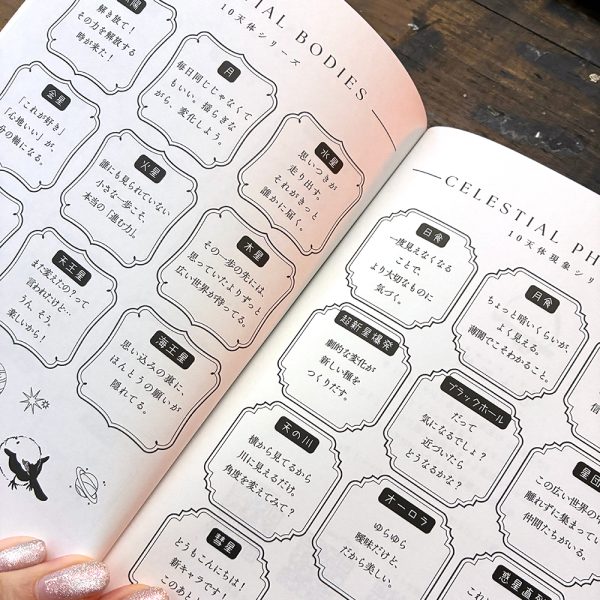 CELESTIAL BODIES
10天体シリーズ
解き放て！
その力を解放する
時が来た！
月
毎日同じじゃなくて
もいい。揺らぎな
がら、変化しよう。
水星
思いつきが
走り出す。
それがきっと
誰かに届く。
金星
「これが好き」
「心地いい」が、
火星
誰にも見られていない
小さな一歩こそ、
本当の「進む力」。
木星
その一歩の先には、
思っていたよりずっと
広い世界が待ってる。
天王星
また変えたの？って
言われたけど…
うん、そう。
楽しいから！
海王星
思い込みの裏に、
ほんとうの願いが
隠れてる。
CELESTIAL PH
10天体現象シリ
日食
一度見えなくなる
ことで、
より大切なものに
気づく。
月食
ちょっと暗いくらいが、
よく見える。
薄闇でこそわかること。
超新星爆発
劇的な変化が
新しい種を
つくりだす。
ブラックホール
だって
気になるでしょ？
近づいたら
どうなるかな？
天の川
横から見てるから
川に見えるだけ。
角度を変えてみて？
オーロラ
ゆらゆら
曖昧だけど、
だから美しい。
星団
この広い世界の中
離れずに集まってい
仲間たちがいる。
彗星
どうもこんにちは！
新キャラです！
このあと
惑星直列